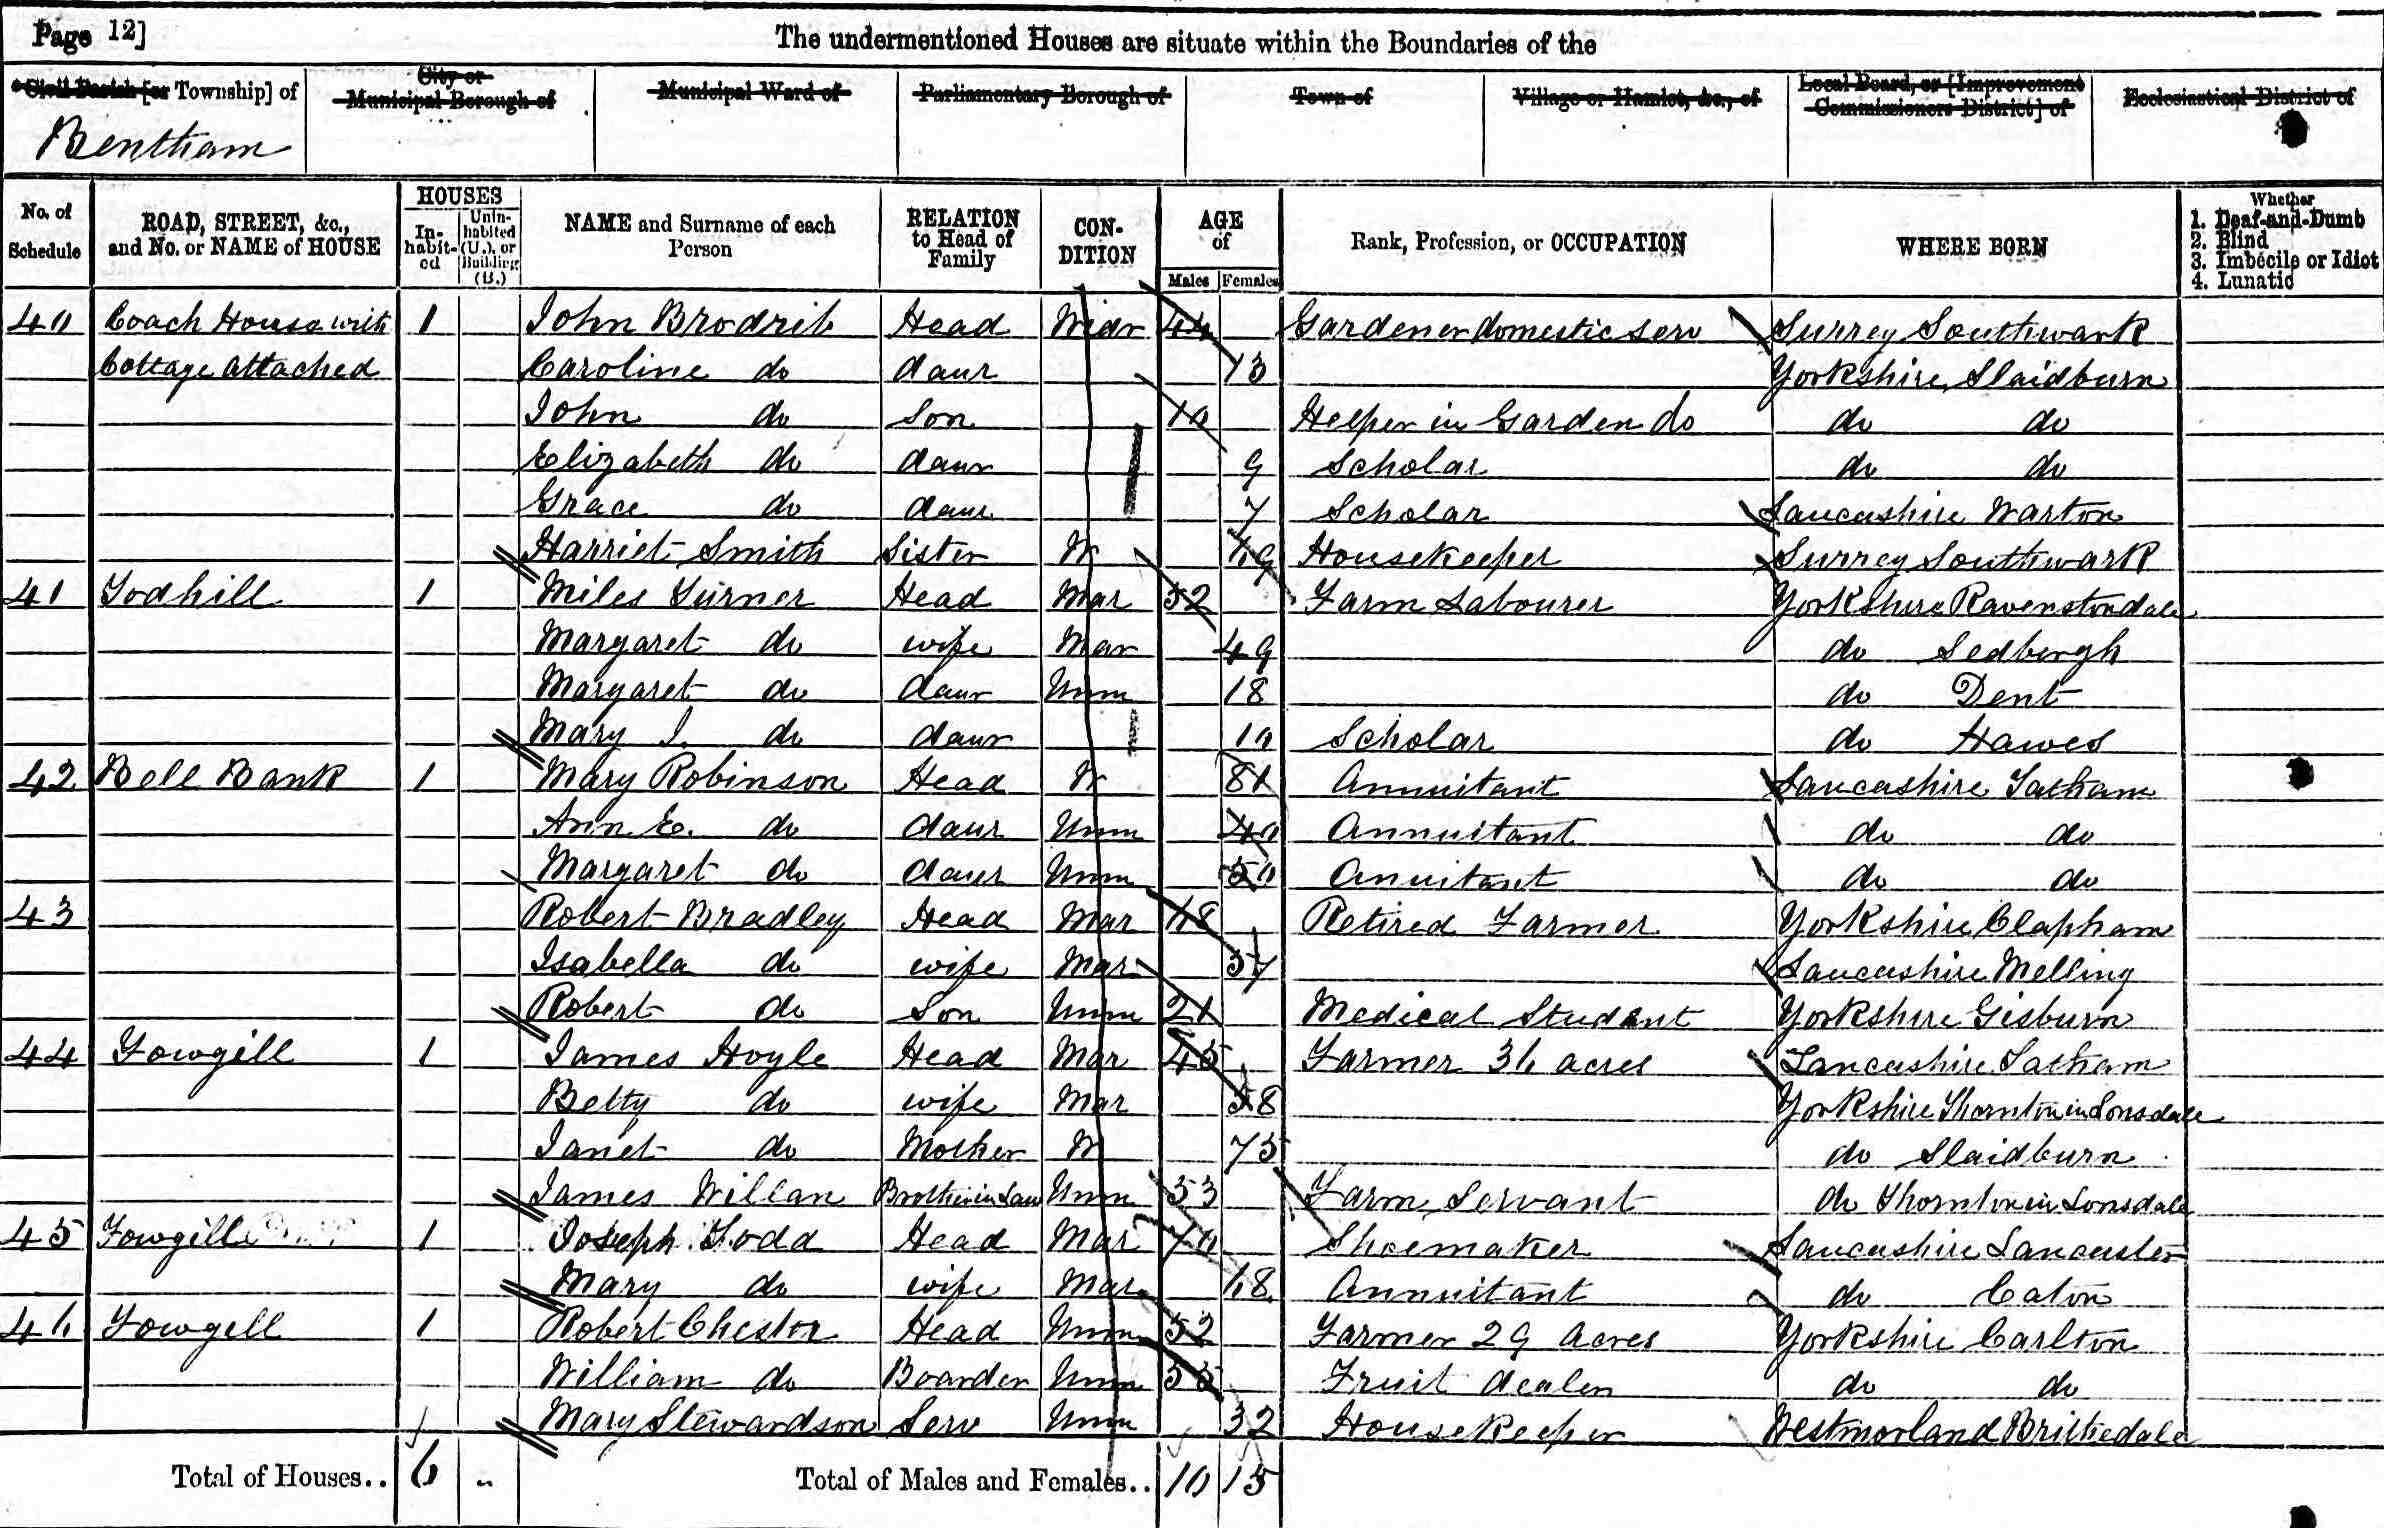 Page 12]
The undermentioned Houses are situate within the Boundaries of the
Civil Parish [or Township] of
City or Municipal Borough of
Municipal Ward of
Parliamentary Borough of
Town of
Village or Hamlet, &c., of
Local Board, or [Improvement Commissioners District] of
Ecclesiastical District of
Bentham
No. of Schedule
ROAD, STREET, &c., and No. or NAME of HOUSE
HOUSES
Inhabited
Uninhabited (U.), or Building (B.)
NAME and Surname of each Person
RELATION to Head of Family
CONDITION
AGE of
Males Females
Rank, Profession, or OCCUPATION
WHERE BORN
Whether
1. Deaf-and-Dumb
2. Blind
3. Imbecile or Idiot
4. Lunatic
40 Coach House with 1 John Brodrib Head Widr 44 Gardener domestic serv Surrey Southwark
Cottage Attached Caroline do daur 13 Yorkshire Slaidburn
John do Son 10 Helper in Garden do do do
Elizabeth do daur 9 Scholar do do
Grace do daur 7 Scholar Lancashire Warton
Harriet Smith Sister W 69 Housekeeper Surrey Southwark
41 Todhill 1 Miles Turner Head Mar 52 Farm Labourer Yorkshire Ravenstondale
Margaret do wife Mar 49 do Sedbergh
Margaret do daur Unm 18 do Dent
Mary I. do daur 10 Scholar do Hawes
42 Bell Bank 1 Mary Robinson Head W 81 Annuitant Lancashire Tatham
Ann E. do daur Unm 40 Annuitant do do
Margaret do daur Unm 50 Anuitant do do
43 Robert Bradley Head Mar 68 Retired Farmer Yorkshire Clapham
Isabella do wife Mar 57 Lancashire Melling
Robert do Son Unm 21 Medical Student Yorkshire Gisburn
44 Fowgill 1 James Hoyle Head Mar 45 Farmer 36 acres Lancashire Tatham
Betty do wife Mar 58 Yorkshire Thornton in Lonsdale
Janet do Mother W 75 do Slaidburn
James Willan Brother in Law Unm 53 Farm Servant do Thornton in Lonsdale
45 Fowgill 1 Joseph Todd Head Mar 70 Shoemaker Lancashire Lancaster
Mary do wife Mar 68 Annuitant do Caton
46 Fowgill 1 Robert Chester Head Unm 52 Farmer 29 Acres Yorkshire Carlton
William do Boarder Unm 55 Fruit dealer do do
Mary Stewardson Serv Unm 32 Housekeeper Westmorland
Total of Houses.. 6 Total of Males and Females.. 10 15